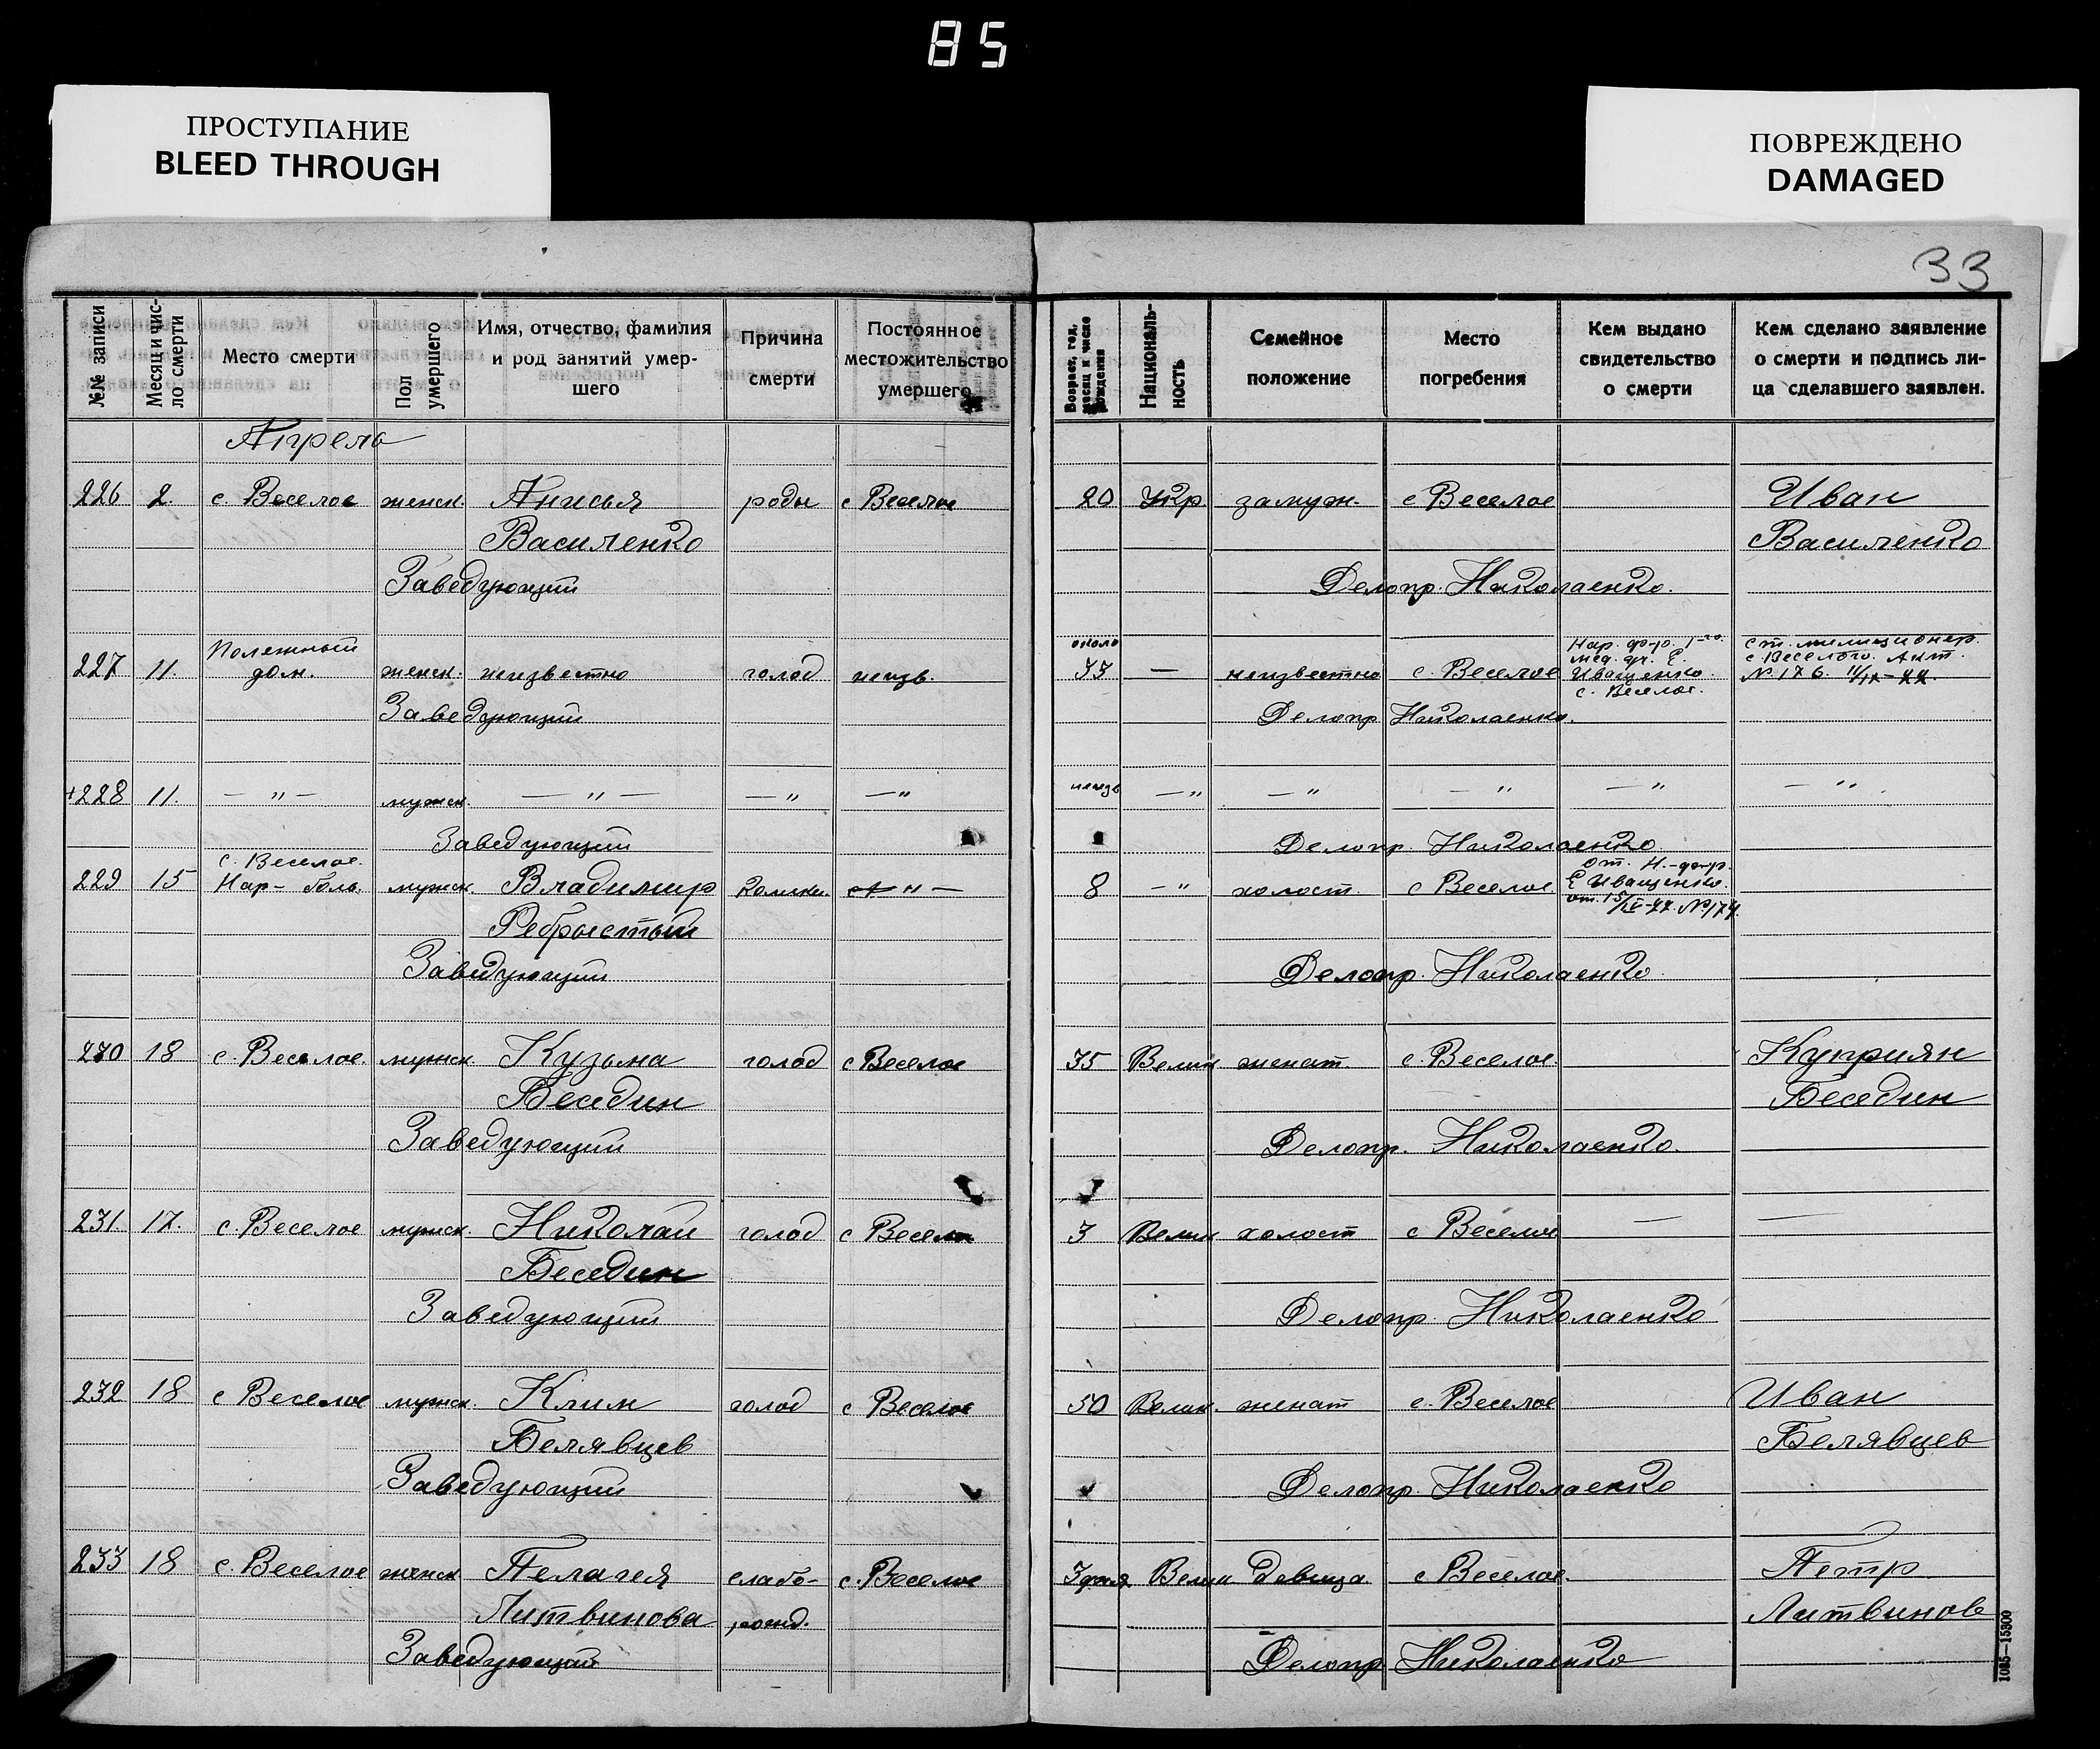 85
ПРОСТУПАНИЕ
BLEED THROUGH
ПОВРЕЖДЕНО
DAMAGED
33
№№ записи
Месяц и чис-
ло смерти
Место смерти
Пол
умершего
Имя, отчество, фамилия
и род занятий умер-
шего
Причина
смерти
Постоянное
местожительство
умершего
Возраст, год,
месяц и число
рождения
Националь-
ность
Семейное
положение
Место
погребения
Кем выдано
свидетельство
о смерти
Кем сделано заявление
о смерти и подпись ли-
ца сделавшего заявлен.
Апрель
226 2. с. Веселое женск. Анисья роды с Веселое 20 Укр замуж. с Веселое Иван
Василенко Василенко
Заведующий Делопр. Николаенко.
227 11. дом. женск. неизвестно голод неизв. около 33 — неизвестно с. Веселое
Нар. 1-го
мед. уч. Е.
Иващенко.
с. Веселое.
ст. милиционер.
с Веселого. Акт.
№ 176. 11/IV-22.
Заведующий Делопр Николаенко.
+228 11. — „ — мужск. — „ — — „ — „ неизв — „ — „ — „ — „ — „
Заведующий Делопр. Николаенко
229 15 с. Веселое. Нар- боль. мужск. Владимир — „ — 8 — „ холост. с Веселое
Е Иващенко.
от. 15/IV-22. № 174.
Ребрыстый
Заведующий Делопр. Николаенко
230 18 с. Веселое. мужск. Кузьма голод с Веселое 35 Велик женат. с. Веселое. Куприян
Беседин Беседин
Заведующий Делопр. Николаенко.
231. 17. с. Веселое мужск. Николай голод с Веселое 3 Велик холост с Веселое — —
Беседин
Заведующий Делопр. Николаенко
232 18 с Веселое мужск. Клим голод с Веселое 50 Велик. женат с. Веселое Иван
Белявцев Белявцев
Заведующий Делопр. Николаенко
233 18 с. Веселое женск Пелагея слабо- с. Веселое 3 дня Велик девица с Веселое. Петр
Литвинова рожд. Литвинов
Заведующий Делопр Николаенко
1085—15300